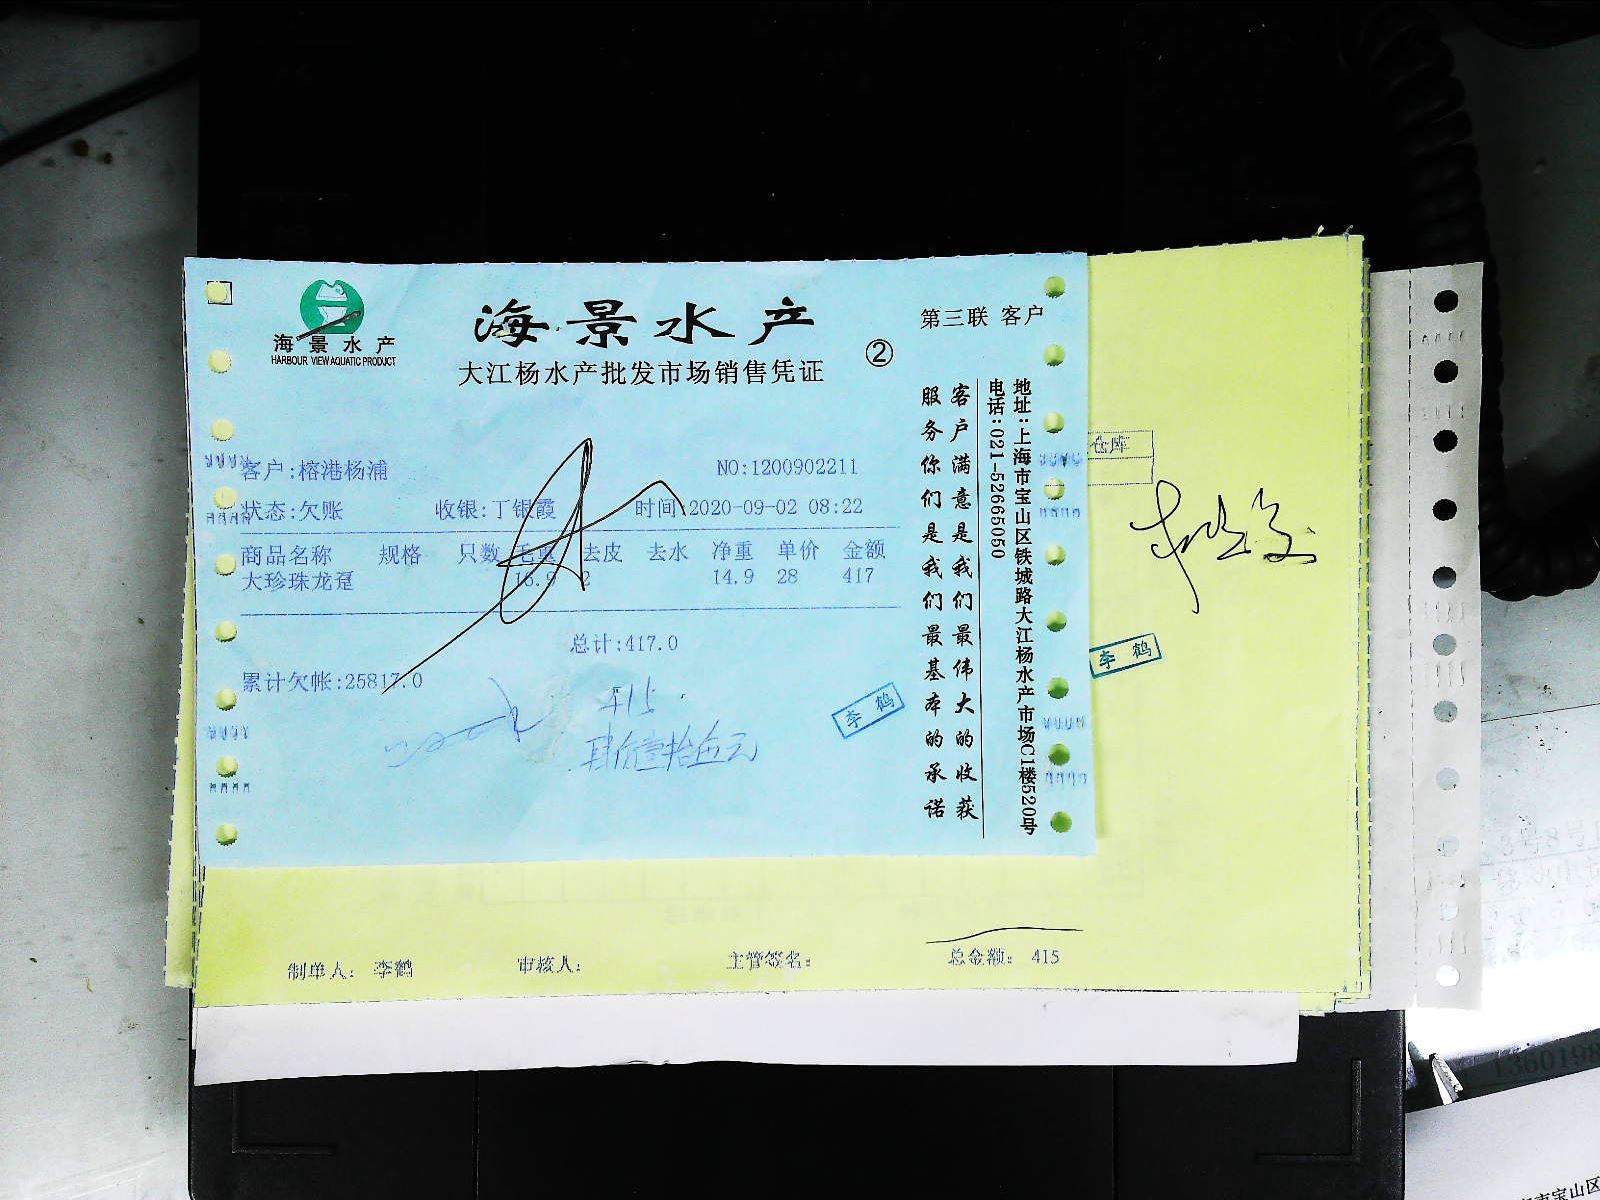 海景水产
HARBOUR VIEW AQUATIC PRODUCT
海景水产
大江杨水产批发市场销售凭证
②
第三联 客户
客户:榕港杨浦
NO:1200902211
状态:欠账 收银:丁银霞 时间:2020-09-02 08:22
商品名称 规格 只数 毛重 去皮 去水 净重 单价 金额
大珍珠龙趸 16.9 2 14.9 28 417
总计:417.0
累计欠帐:25817.0
415
肆佰壹拾伍元
李鹤
客户满意是我们最伟大的收获
服务你们是我们最基本的承诺
地址:上海市宝山区铁城路大江杨水产市场C1楼520号
电话:021-52665050
仓库
李鹤
制单人: 李鹤 审核人: 主管签名: 总金额: 415